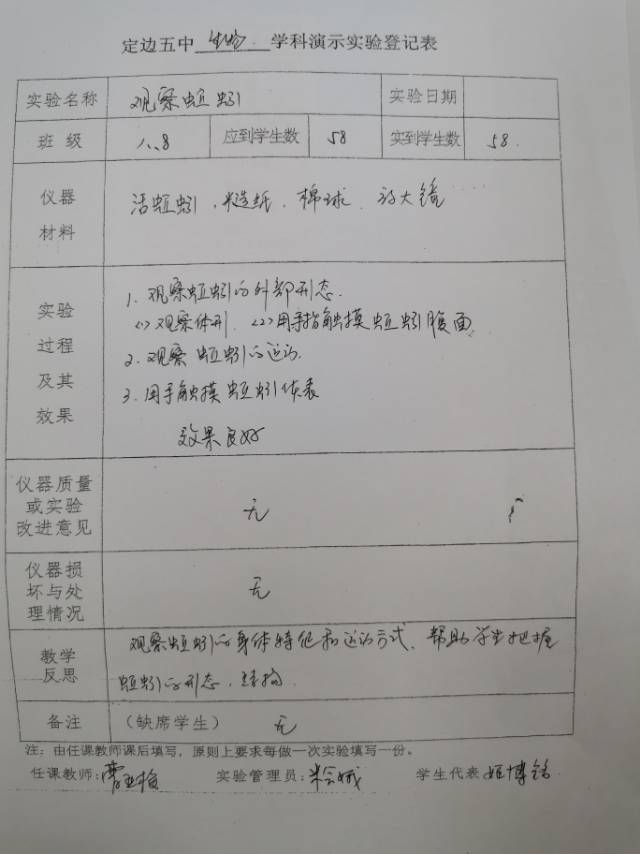 定边五中 生物 学科演示实验登记表
实验名称 观察蚯蚓 实验日期
班 级 八、8 应到学生数 58 实到学生数 58.
仪器
材料
活蚯蚓、糙纸、棉球、放大镜
实验
过程
及其
效果
1. 观察蚯蚓的外部形态.
(1) 观察体形. (2) 用手指触摸蚯蚓腹面
2. 观察蚯蚓的运动.
3. 用手触摸蚯蚓体表
效果良好
仪器质量
或实验
改进意见
无
仪器损
坏与处
理情况
无
教学
反思
观察蚯蚓的身体特征和运动方式、帮助学生把握
蚯蚓的形态、结构.
备注 (缺席学生) 无
注:由任课教师课后填写,原则上要求每做一次实验填写一份。
任课教师: 实验管理员: 学生代表